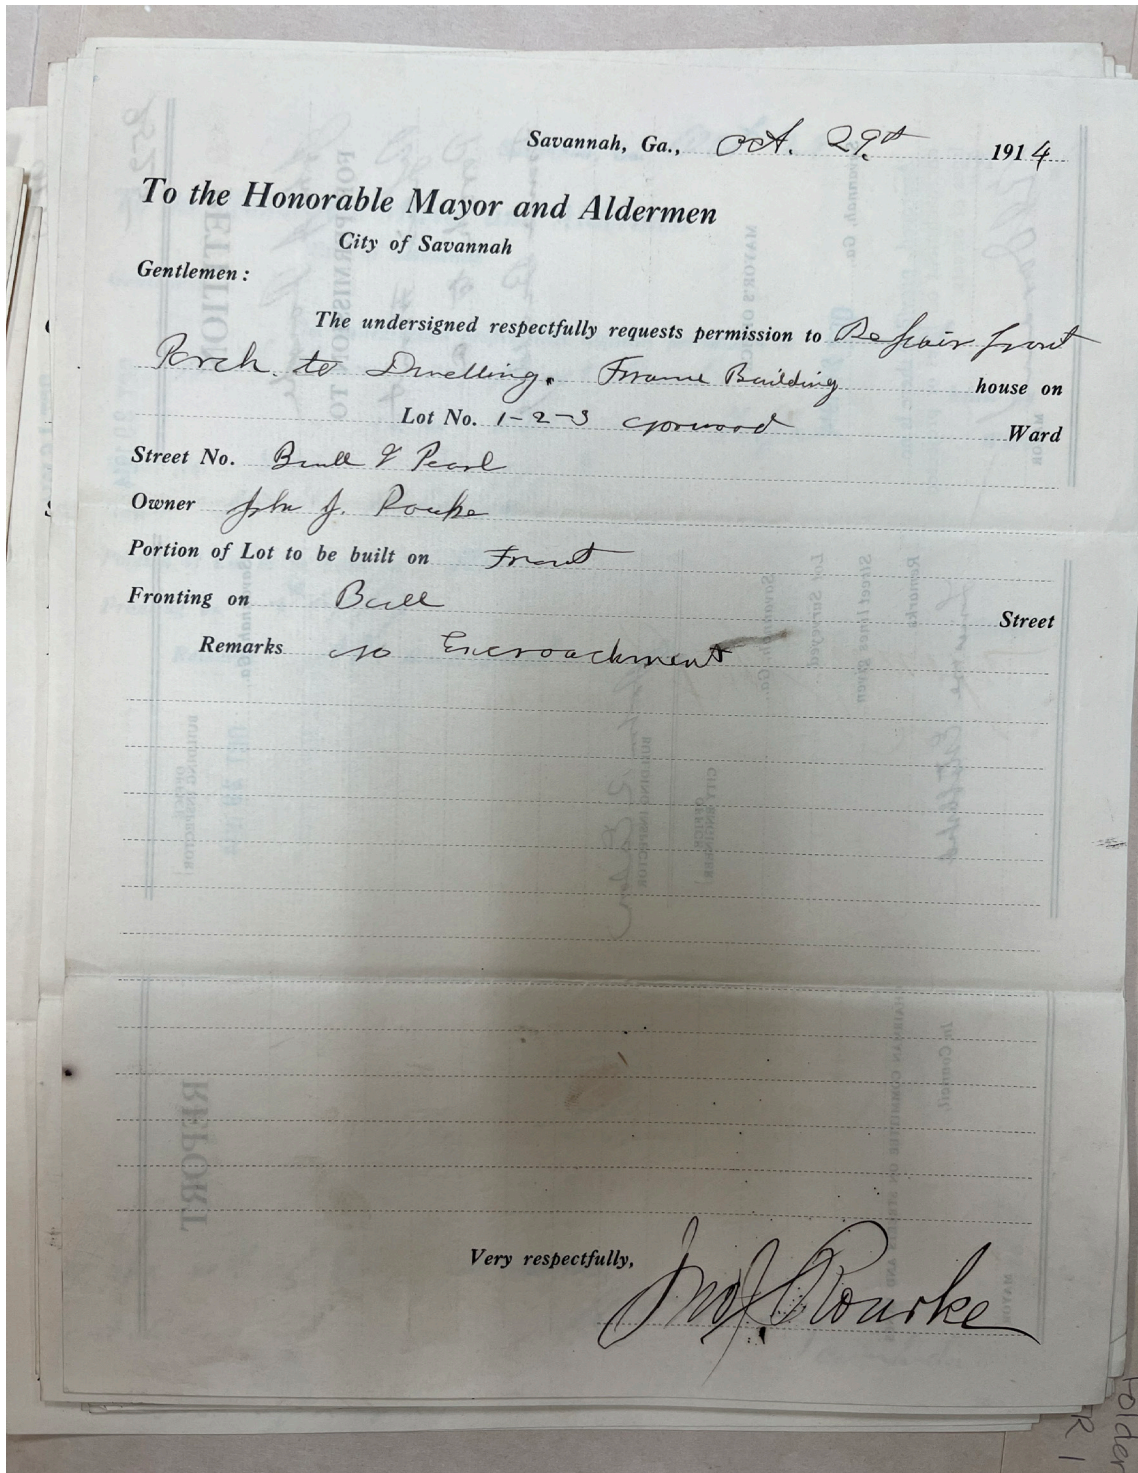 Savannah, Ga., Oct. 29th 1914
To the Honorable Mayor and Aldermen
City of Savannah
Gentlemen:
The undersigned respectfully requests permission to Repair front
Porch to Dwelling. Frame Building house on
Lot No. 1-2-3 Ward
Street No. Bull & Pearl
Owner John J. Rourke
Portion of Lot to be built on Front
Fronting on Bull Street
Remarks no Encroachment
Very respectfully,
Jno J Rourke
Folder
R 1